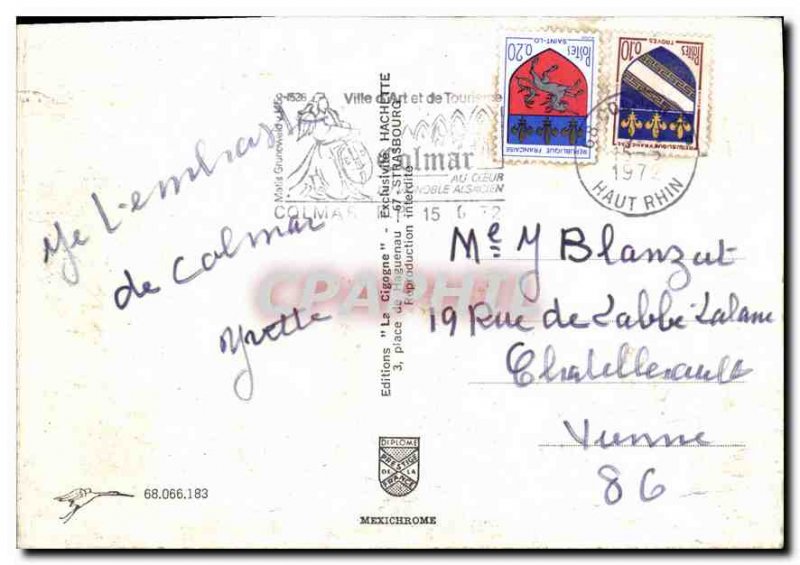 Je t'embrasse
de Colmar
Yvette
68.066.183
Editions "La Cigogne" - Exclusivité HACHETTE
3, place de Haguenau - 67 - STRASBOURG
Reproduction interdite
DIPLOME
PRESTIGE
DE LA
FRANCE
MEXICHROME
1528
Ville d'Art et de Tourisme
Colmar
AU CŒUR
VIGNOBLE ALSACIEN
COLMAR
15 6 72
0,20 POSTES
SAINT-LO
REPUBLIQUE FRANCAISE
0,10 POSTES
TROYES
REPUBLIQUE FRANCAISE
1972
HAUT RHIN
CPARHIL
Me Y Blanzat
19 Rue de L'abbé Lalane
Chatellerault
Vienne
86